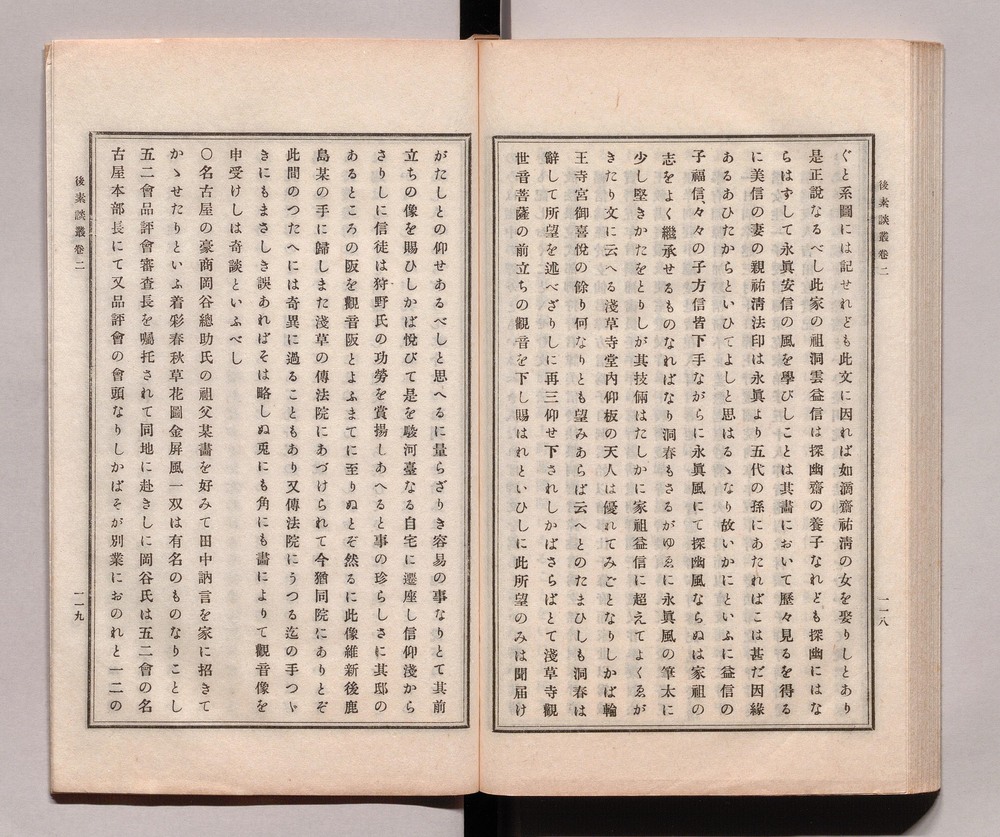 後素談叢卷二
一一八
ぐと系圖には記せれども此文に因れば如滴齋祐淸の女を娶りしとあり
是正說なるべし此家の祖洞雲益信は探幽齋の養子なれども探幽にはな
らはずして永眞安信の風を學びしことは其畫において歷々見るを得る
に美信の妻の親祐淸法印は永眞より五代の孫にあたればこは甚だ因緣
あるあひたからといひてよしと思はるゝなり故いかにといふに益信の
子福信、々々の子方信皆下手ながらに永眞風にて探幽風ならぬは家祖の
志をよく繼承せるものなればなり洞春もさるがゆゑに永眞風の筆太に
少し堅きかたをとりしが其技倆はたしかに家祖益信に超えてよくゑが
きたり文に云へる淺草寺堂內仰板の天人は優れてみごとなりしかば輪
王寺宮御喜悅の餘り何なりとも望みあらば云へとのたまひしも洞春は
辭して所望を述べざりしに再三仰せ下されしかばさらばとて淺草寺觀
世音菩薩の前立ちの觀音を下し賜はれといひしに此所望のみは聞屆け
がたしとの仰せあるべしと思へるに量らざりき容易の事なりとて其前
立ちの像を賜ひしかば悅びて是を駿河臺なる自宅に遷座し信仰淺から
さりしに信徒は狩野氏の功勞を賞揚しあへると事の珍らしさに其邸の
あるところの阪を觀音阪とよふまてに至りぬとぞ然るに此像維新後鹿
島某の手に歸しまた淺草の傳法院にあづけられて今猶同院にありとぞ
此間のつたへには奇異に過ることもあり又傳法院にうつる迄の手つゝ
きにもまさしき誤あればそは略しぬ兎にも角にも畵により て觀音像を
申受けしは奇談といふべし
〇名古屋の豪商岡谷總助氏の祖父某畵を好みて田中訥言を家に招きて
かゝせたりといふ着彩春秋草花圖金屏風一双は有名のものなりことし
五二會品評會審查長を囑托されて同地に赴きしに岡谷氏は五二會の名
古屋本部長にて又品評會の會頭なりしかばそが別業におのれと一二の
後素談叢卷二
一一九